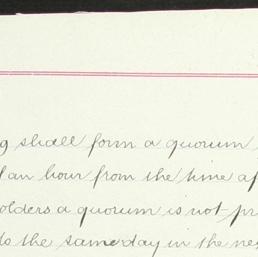 g shall form a quorum
f an hour from the time af
olders a quorum is not pr
to the same day in the ne